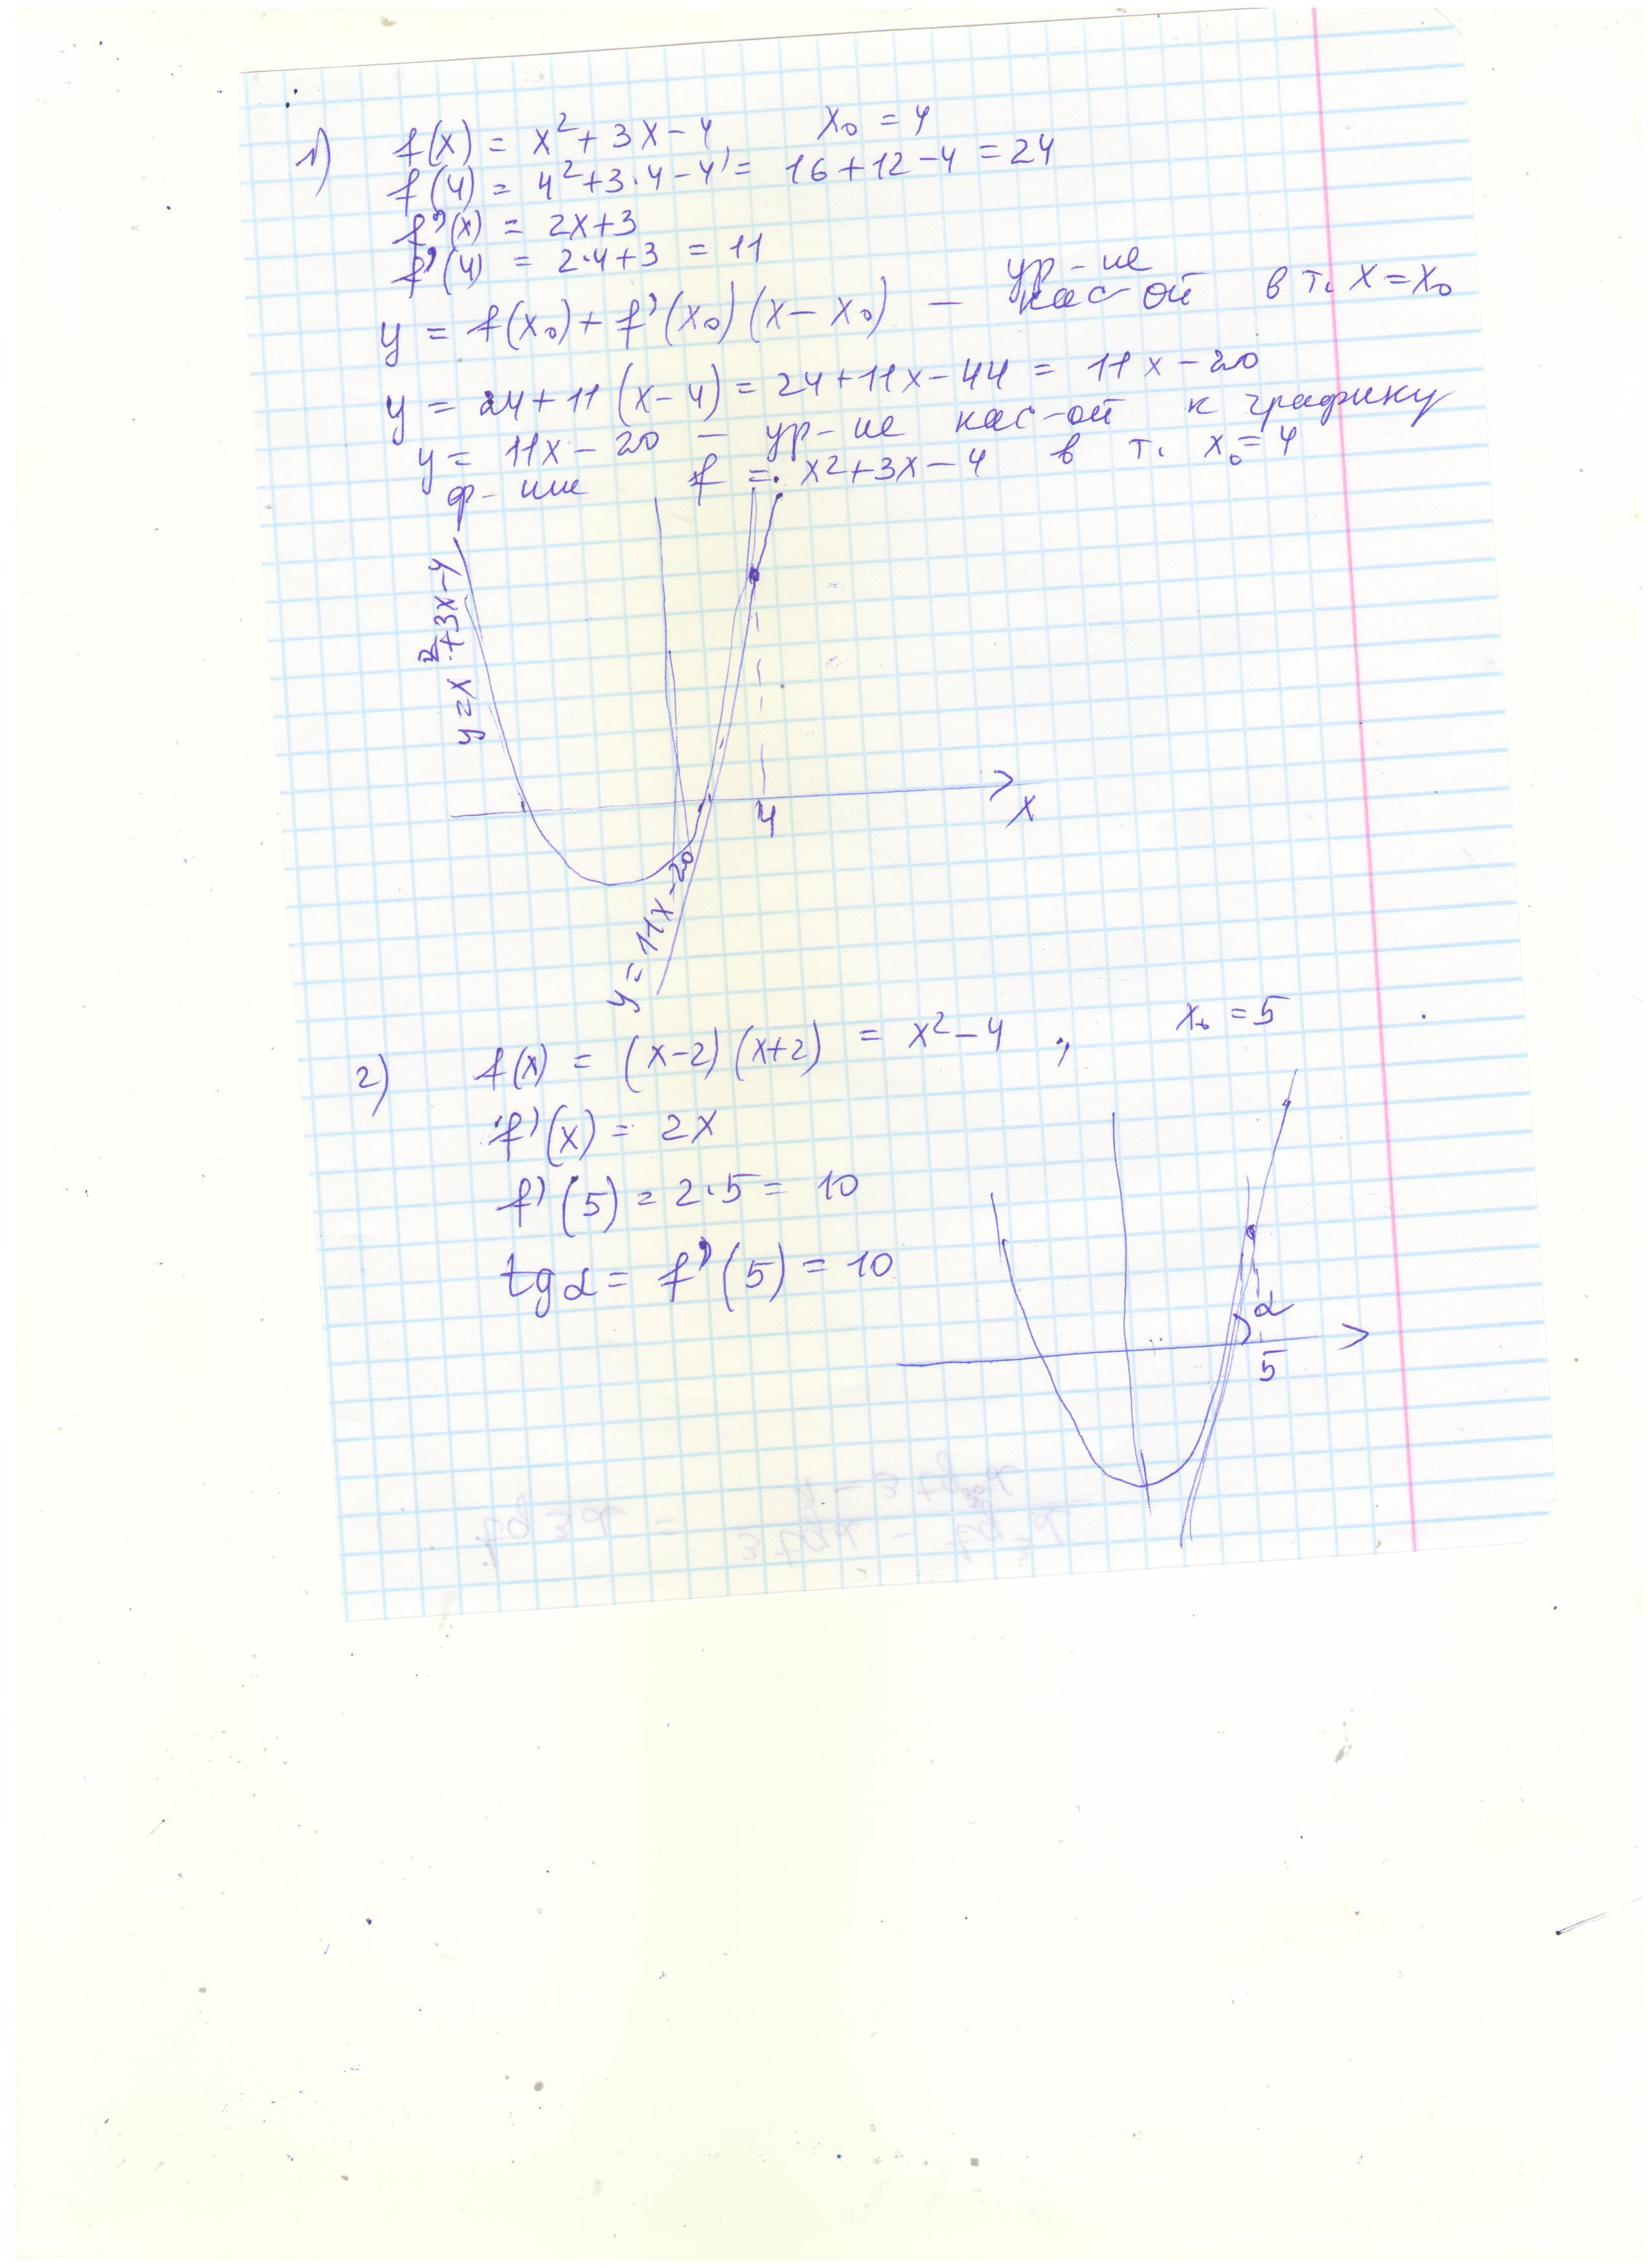 1) f(x) = x²+3x-4 x₀ = 4
f(4) = 4²+3·4-4 = 16+12-4 = 24
f'(x) = 2x+3
f'(4) = 2·4+3 = 11
y = f(x₀)+f'(x₀)(x-x₀) — ур-ие кас-ой в т. x=x₀
y = 24+11(x-4) = 24+11x-44 = 11x-20
y = 11x-20 — ур-ие кас-ой к графику
ф-ии f = x²+3x-4 в т. x₀=4
y=x²+3x-4
4
x
y=11x-20
2) f(x) = (x-2)(x+2) = x²-4, x₀=5
f'(x) = 2x
f'(5) = 2·5 = 10
tgα = f'(5) = 10
α
5